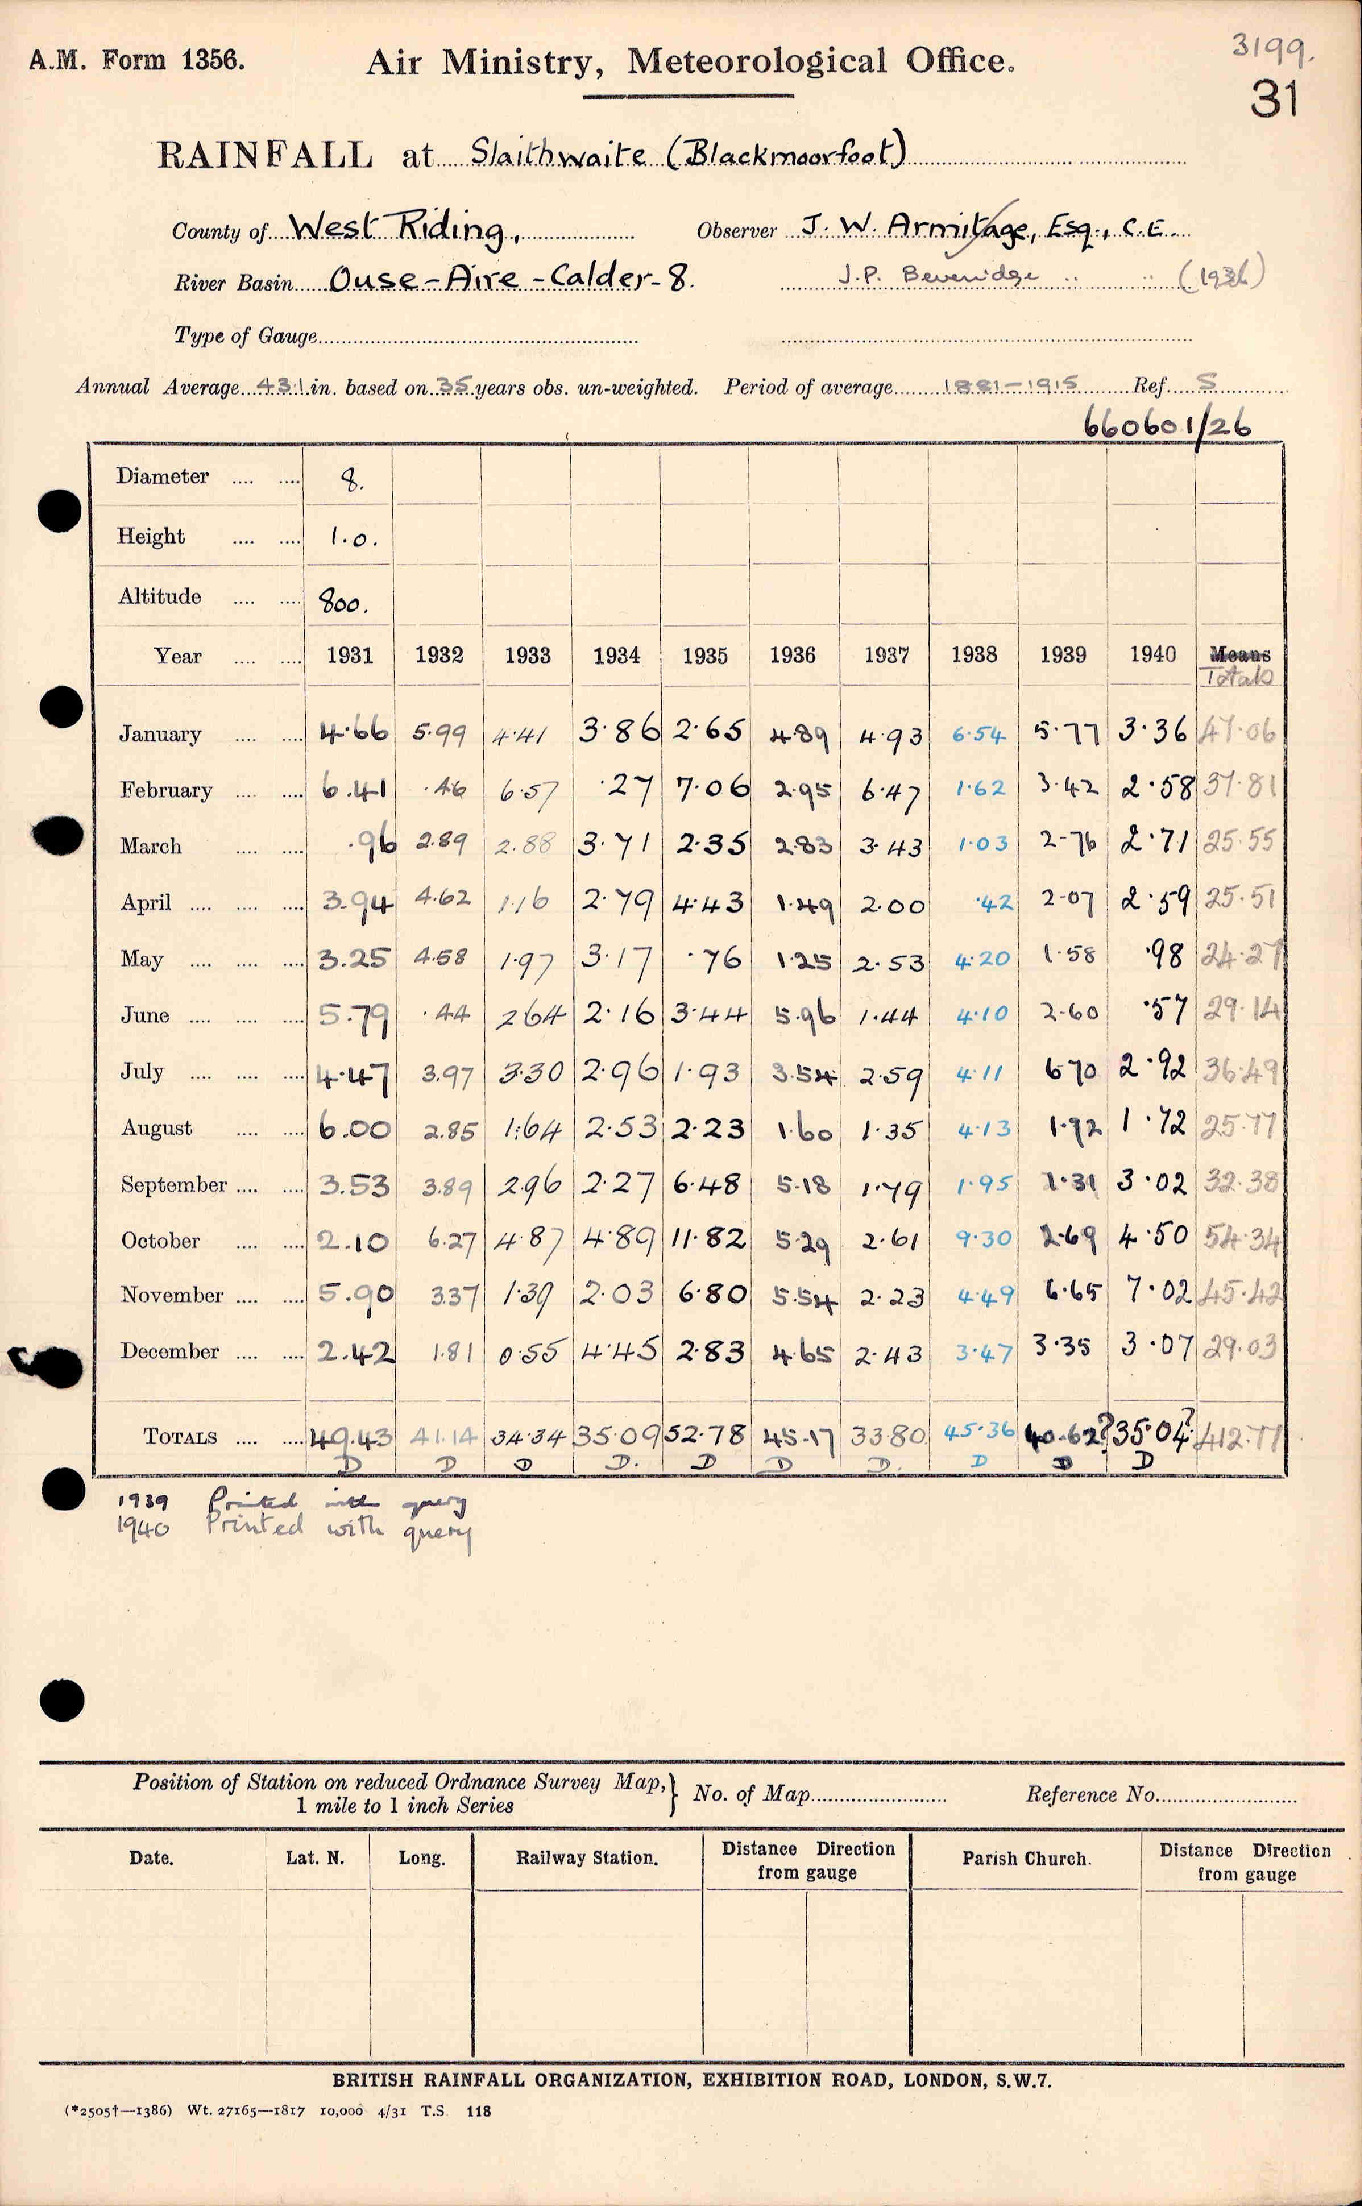 A.M. Form 1356.
Air Ministry, Meteorological Office.
3199.
31
RAINFALL at Slaithwaite (Blackmoorfoot)
County of West Riding, Observer J. W. Armitage, Esq., C.E.
River Basin Ouse-Aire-Calder-8. J.P. Beveridge " " (1936)
Type of Gauge
Annual Average 43.1 in. based on 35 years obs. un-weighted. Period of average 1881-1915 Ref. S
660601/26
Diameter .... .... 8.
Height .... .... 1.0.
Altitude .... .... 800.
Year .... .... 1931 1932 1933 1934 1935 1936 1937 1938 1939 1940 Means
Totals
January .... .... 4.66 5.99 4.41 3.86 2.65 4.89 4.93 6.54 5.77 3.36 47.06
February .... .... 6.41 .46 6.57 .27 7.06 2.95 6.47 1.62 3.42 2.58 37.81
March .... .... .96 2.89 2.88 3.71 2.35 2.83 3.43 1.03 2.76 2.71 25.55
April .... .... .... 3.94 4.62 1.16 2.79 4.43 1.49 2.00 .42 2.07 2.59 25.51
May .... .... .... 3.25 4.58 1.97 3.17 .76 1.25 2.53 4.20 1.58 .98 24.27
June .... .... .... 5.79 .44 2.64 2.16 3.44 5.96 1.44 4.10 2.60 .57 29.14
July .... .... .... 4.47 3.97 3.30 2.96 1.93 3.54 2.59 4.11 6.70 2.92 36.49
August .... .... 6.00 2.85 1.64 2.53 2.23 1.60 1.35 4.13 1.72 1.72 25.77
September .... .... 3.53 3.89 2.96 2.27 6.48 5.18 1.79 1.95 1.31 3.02 32.38
October .... .... 2.10 6.27 4.87 4.89 11.82 5.29 2.61 9.30 2.69 4.50 54.34
November .... .... 5.90 3.37 1.39 2.03 6.80 5.54 2.23 4.49 6.65 7.02 45.42
December .... .... 2.42 1.81 0.55 4.45 2.83 4.65 2.43 3.47 3.35 3.07 29.03
TOTALS .... .... 49.43 41.14 34.34 35.09 52.78 45.17 33.80 45.36 40.62? 35.04? 412.77
D D D D. D D D. D D D
1939 Printed with query
1940 Printed with query
Position of Station on reduced Ordnance Survey Map,} No. of Map Reference No.
1 mile to 1 inch Series
Date. Lat. N. Long. Railway Station. Distance Direction from gauge Parish Church. Distance Direction from gauge
BRITISH RAINFALL ORGANIZATION, EXHIBITION ROAD, LONDON, S.W.7.
(*2505†—1386) Wt. 27165—1817 10,000 4/31 T.S. 118